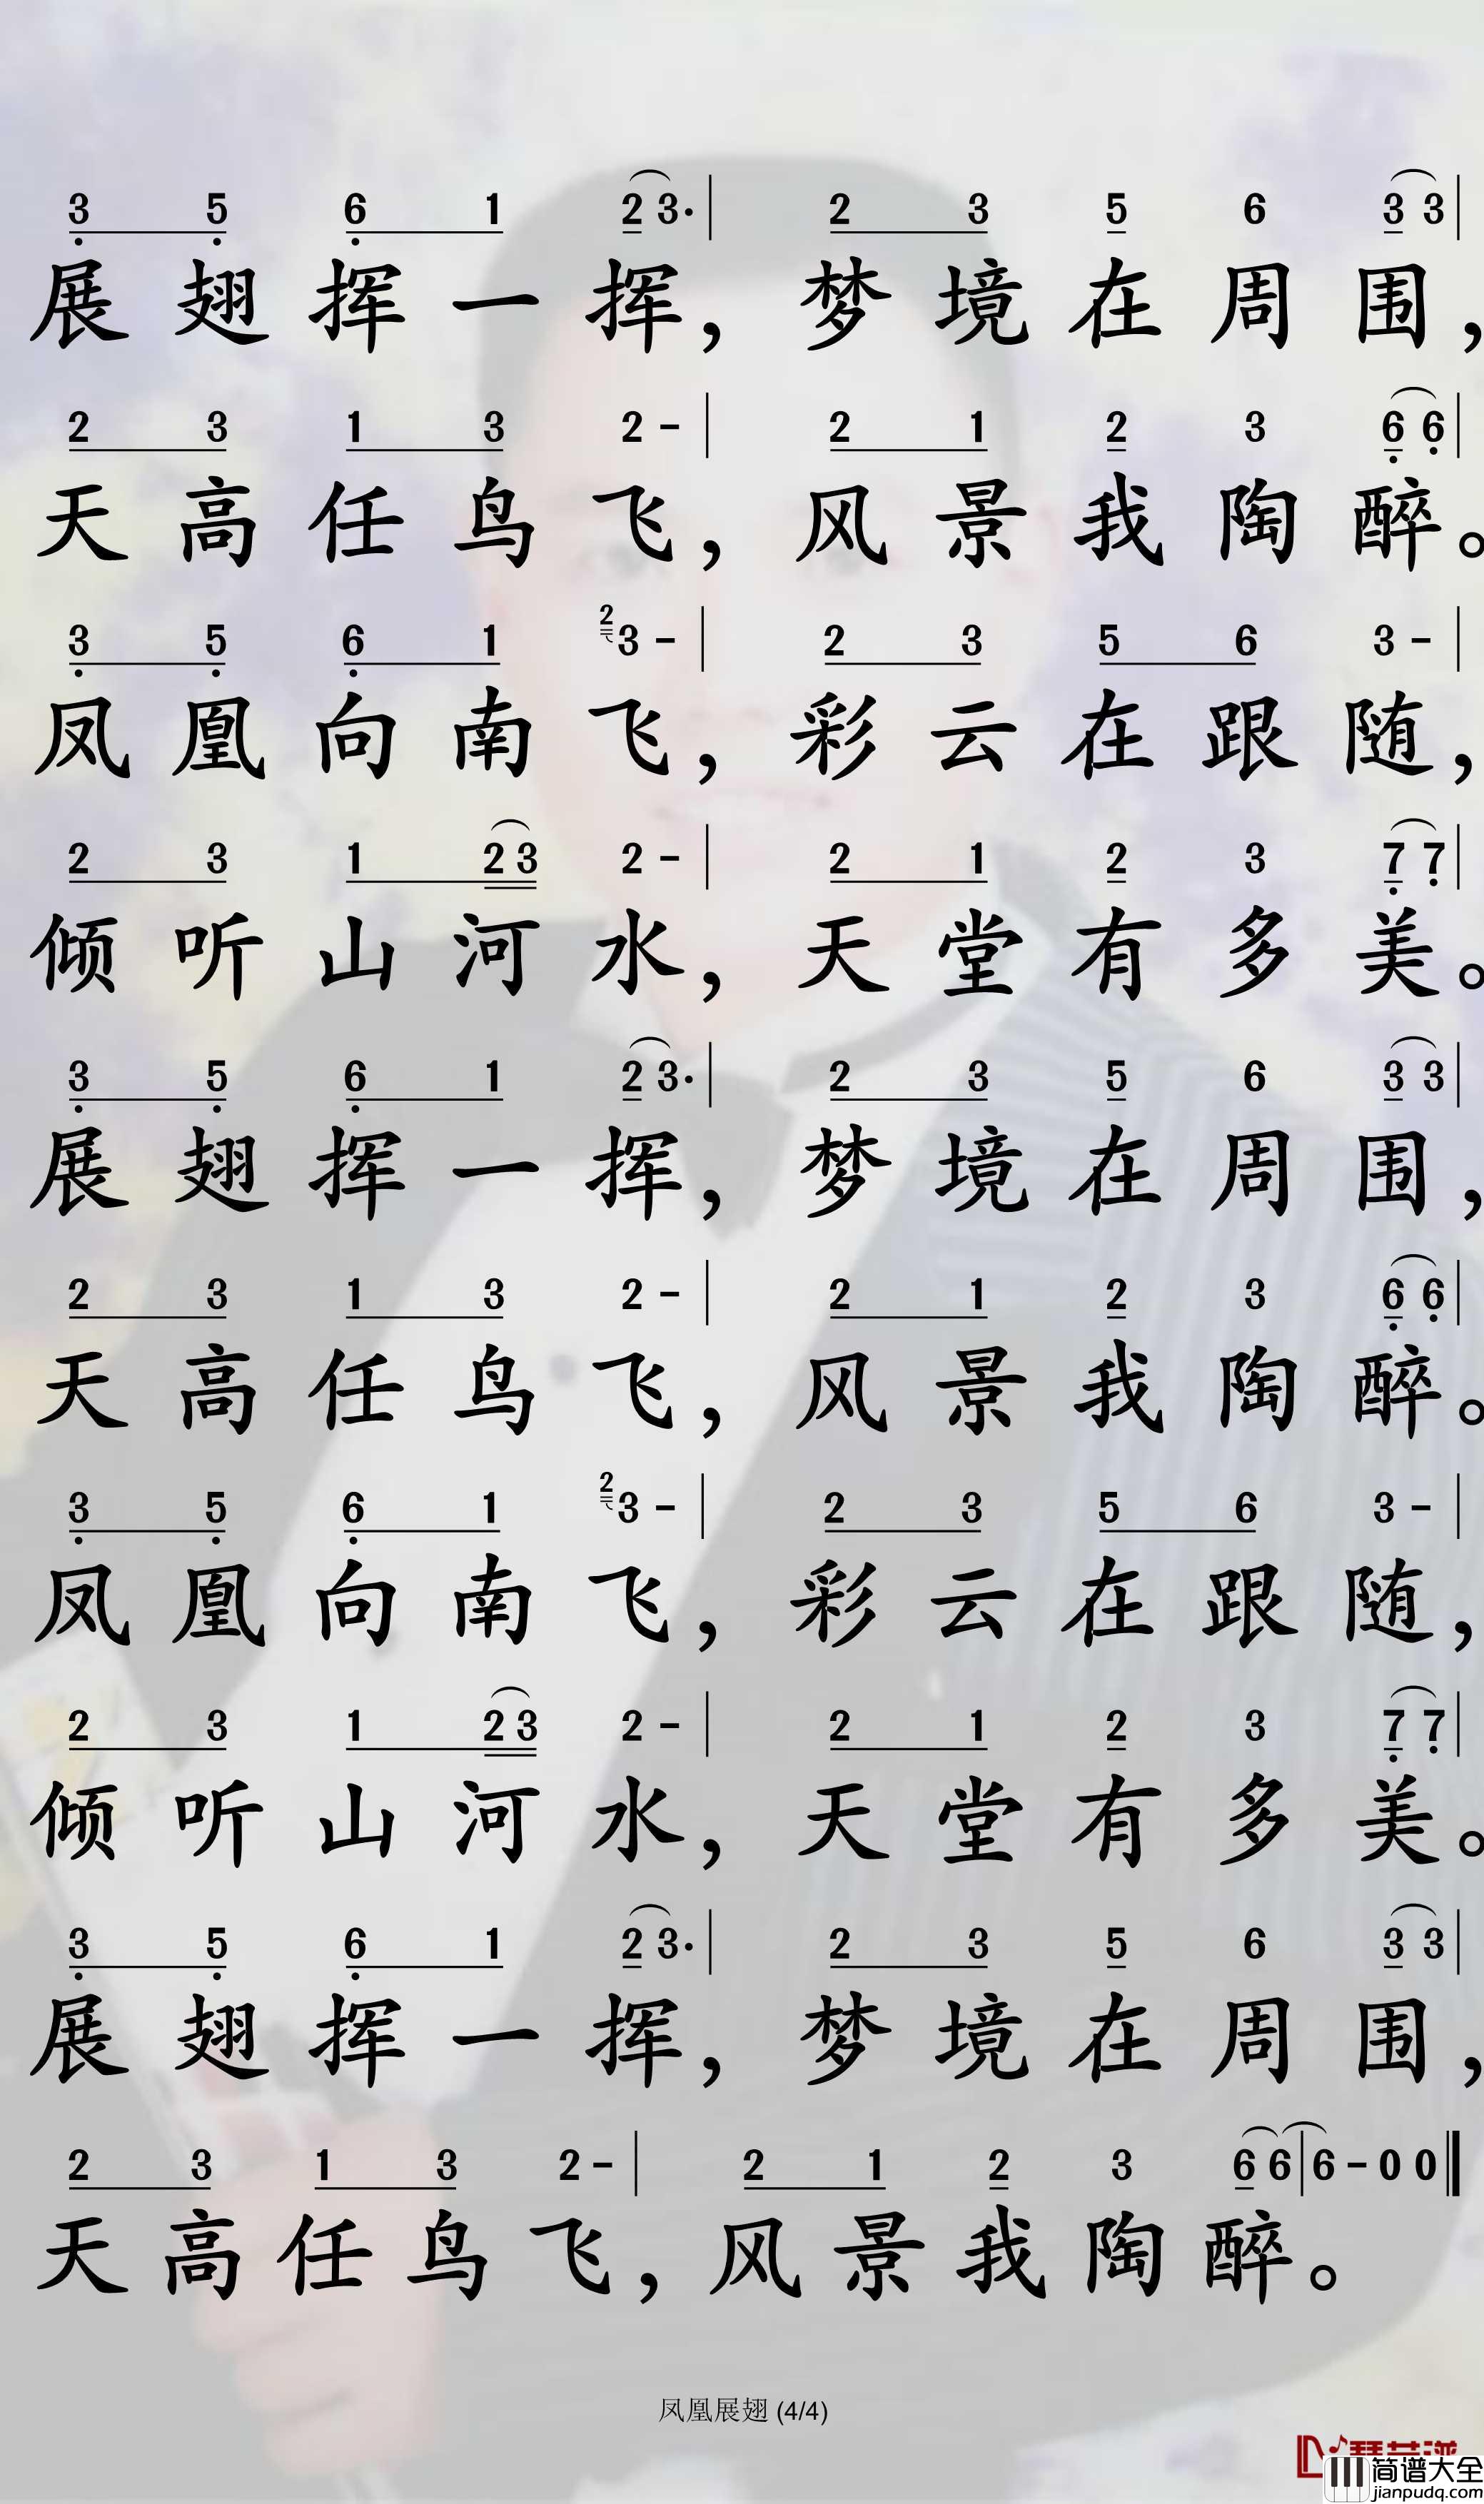 3 5 6 1 2 3· | 2 3 5 6 3 3 |
展翅挥一挥，梦境在周围，
2 3 1 3 2 - | 2 1 2 3 6 6 |
天高任鸟飞，风景我陶醉。
3 5 6 1 2 3 - | 2 3 5 6 3 - |
凤凰向南飞，彩云在跟随，
2 3 1 2 3 2 - | 2 1 2 3 7 7 |
倾听山河水，天堂有多美。
3 5 6 1 2 3· | 2 3 5 6 3 3 |
展翅挥一挥，梦境在周围，
2 3 1 3 2 - | 2 1 2 3 6 6 |
天高任鸟飞，风景我陶醉。
3 5 6 1 2 3 - | 2 3 5 6 3 - |
凤凰向南飞，彩云在跟随，
2 3 1 2 3 2 - | 2 1 2 3 7 7 |
倾听山河水，天堂有多美。
3 5 6 1 2 3· | 2 3 5 6 3 3 |
展翅挥一挥，梦境在周围，
2 3 1 3 2 - | 2 1 2 3 6 6 | 6 - 0 0 ‖
天高任鸟飞，风景我陶醉。
凤凰展翅 (4/4)
简谱大全
jianpudq.com